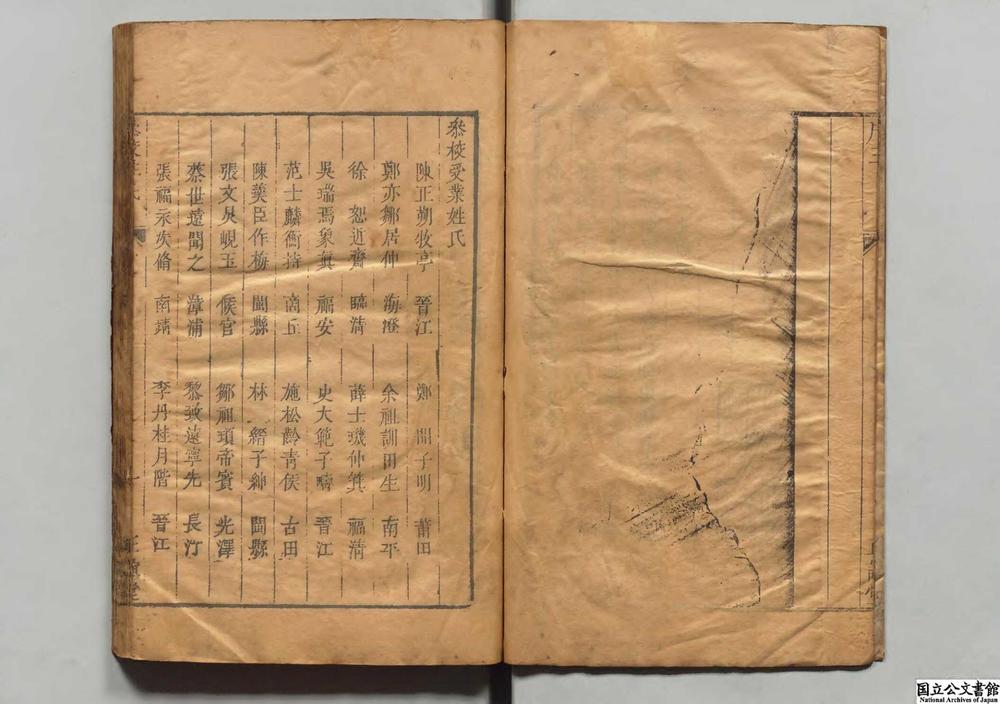 參校受業姓氏
陳正朔牧亭 晉江 鄭 開子明 莆田
鄭亦鄒居仲 海澄 余祖訓田生 南平
徐 恕近齋 臨清 薛士璣仲箕 福清
吳瑞焉象 福安 史大範子疇 晉江
范士麟衡持 商丘 施松齡青侯 古田
陳羙臣作梅 閩縣 林 縉子紳 閩縣
張文炅峴玉 侯官 鄒祖瑣帝賓 光澤
蔡世遠聞之 漳浦 黎致遠寧先 長汀
張福永次脩 南靖 李丹桂月階 晉江
国立公文書館
National Archives of Japan